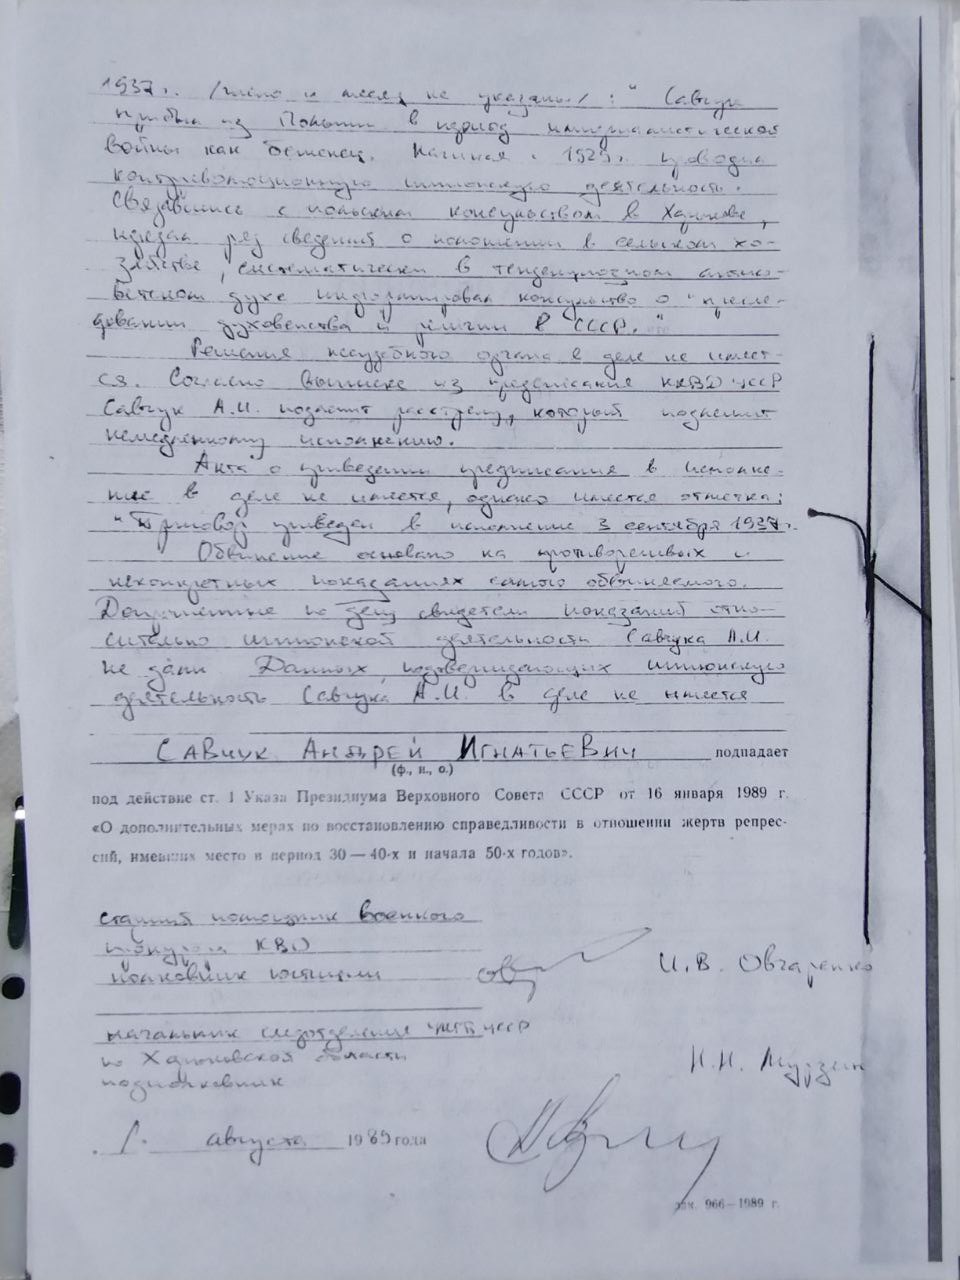 1937г. /число и месяц не указаны/: "Савчук
прибыл из Польши в период империалистической
войны как беженец. Начиная с 1929г. проводил
контрреволюционную шпионскую деятельность.
Связавшись с польским консульством в Харькове,
передал ряд сведений о положении в сельском хо-
зяйстве, систематически в тенденциозном антисо-
ветском духе информировал консульство о "пресле-
довании духовенства и религии в СССР."
Решения несудебного органа в деле не имеет-
ся. Согласно выписке из предписания НКВД УССР
Савчук А.И. подлежит расстрелу, который подлежит
немедленному исполнению.
Акта о приведении предписания в исполне-
ние в деле не имеется, однако имеется отметка:
"Приговор приведен в исполнение 3 сентября 1937г.
Обвинение основано на противоречивых и
неконкретных показаниях самого обвиняемого.
Допрошенные по делу свидетели показаний отно-
сительно шпионской деятельности Савчука А.И.
не дали Данных, подтверждающих шпионскую
деятельность Савчука А.И. в деле не имеется
Савчук Андрей Игнатьевич подпадает
(ф., и., о.)
под действие ст. 1 Указа Президиума Верховного Совета СССР от 16 января 1989 г.
«О дополнительных мерах по восстановлению справедливости в отношении жертв репрес-
сий, имевших место в период 30—40-х и начала 50-х годов».
Старший помощник военного
прокурора КВО
полковник юстиции И.В. Овчаренко
Начальник следотделения УКГБ УССР
по Харьковской области
подполковник Н.Н. Мурзин
1. августа 1989 года
зак. 966—1989 г.